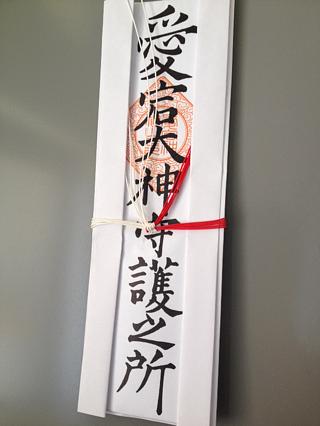 愛宕大神守護之所